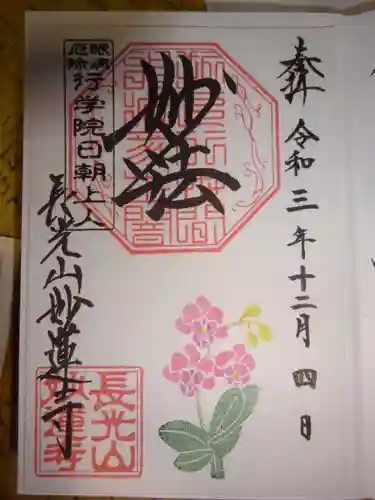 奉拝
令和三年十二月四日
妙法
眼病
厄除
行学院日朝上人
長光山妙蓮寺
長光山
妙蓮寺